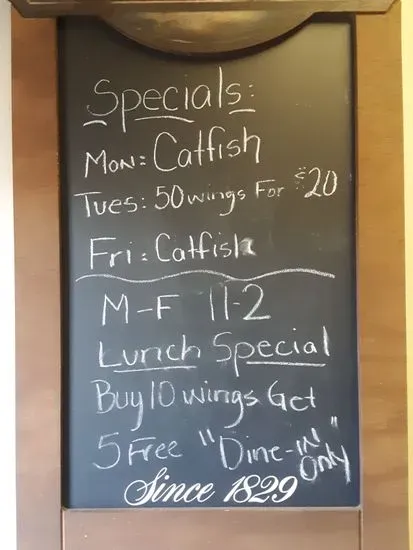 Specials:
Mon: Catfish
Tues: 50 wings For $20
Fri: Catfish
M-F 11-2
Lunch Special
Buy 10 wings Get
5 Free "Dine-IN Only"
Since 1829